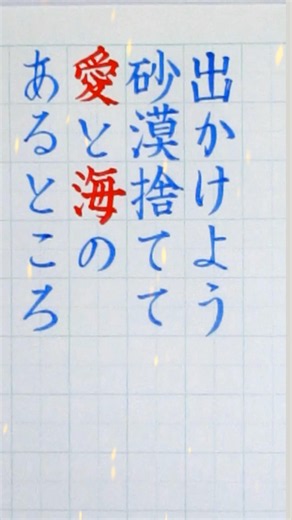 出かけよう
砂漠捨てて
愛と海の
あるところ